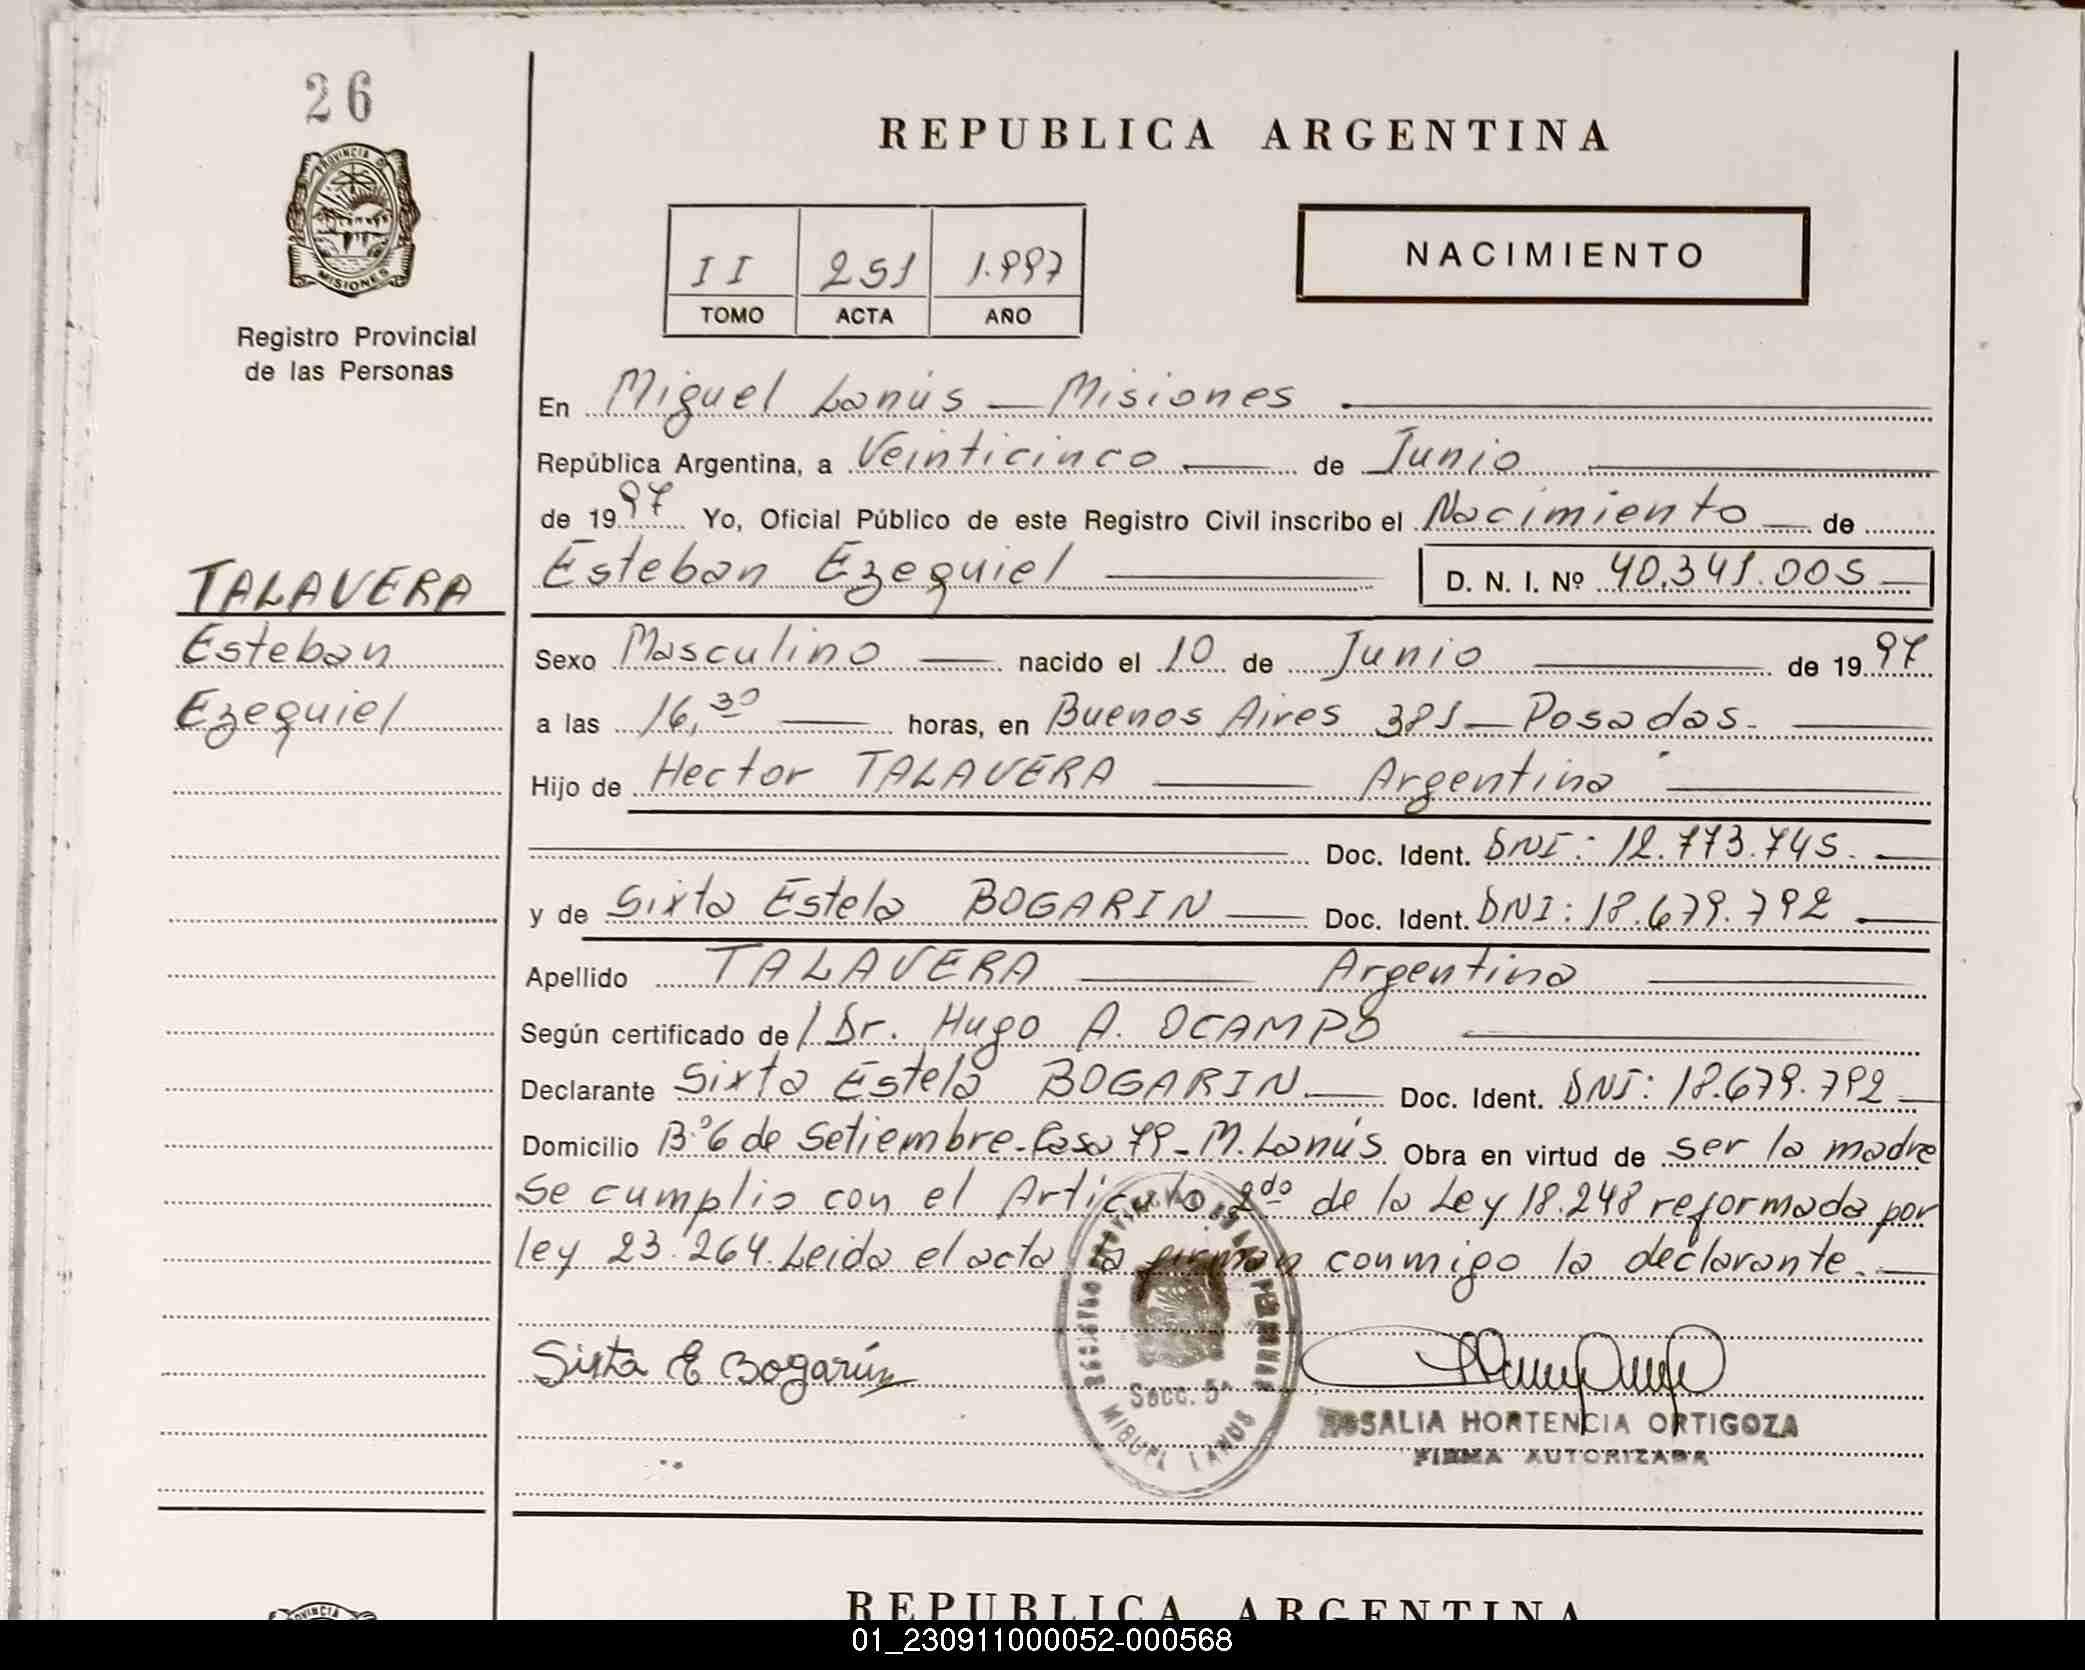 26
PROVINCIA DE
MISIONES
Registro Provincial
de las Personas
REPUBLICA ARGENTINA
II 251 1.997
TOMO ACTA AÑO
NACIMIENTO
En Miguel Lanús — Misiones
República Argentina, a Veinticinco de Junio
de 1997 Yo, Oficial Público de este Registro Civil inscribo el Nacimiento de
Esteban Ezequiel D. N. I. Nº 40.341.005
TALAVERA
Esteban
Ezequiel
Sexo Masculino nacido el 10 de Junio de 1997
a las 16,30 horas, en Buenos Aires 381 — Posadas.
Hijo de Hector TALAVERA Argentino
Doc. Ident. DNI: 12.773.745.
y de Sixta Estela BOGARIN Doc. Ident. DNI: 18.679.792
Apellido TALAVERA Argentina
Según certificado de / Dr. Hugo A. OCAMPO
Declarante Sixta Estela BOGARIN Doc. Ident. DNI: 18.679.792
Domicilio B.º 6 de Setiembre - Casa 79 - M. Lanús Obra en virtud de ser la madre
Se cumplio con el Articulo 2do de la Ley 18.248 reformada por
ley 23.264. Leida el acta la firman conmigo la declarante.
Sixta E Bogarín
Secc. 5ª
MIGUEL LANUS
ROSALIA HORTENCIA ORTIGOZA
FIRMA AUTORIZADA
REPUBLICA ARGENTINA
01_230911000052-000568